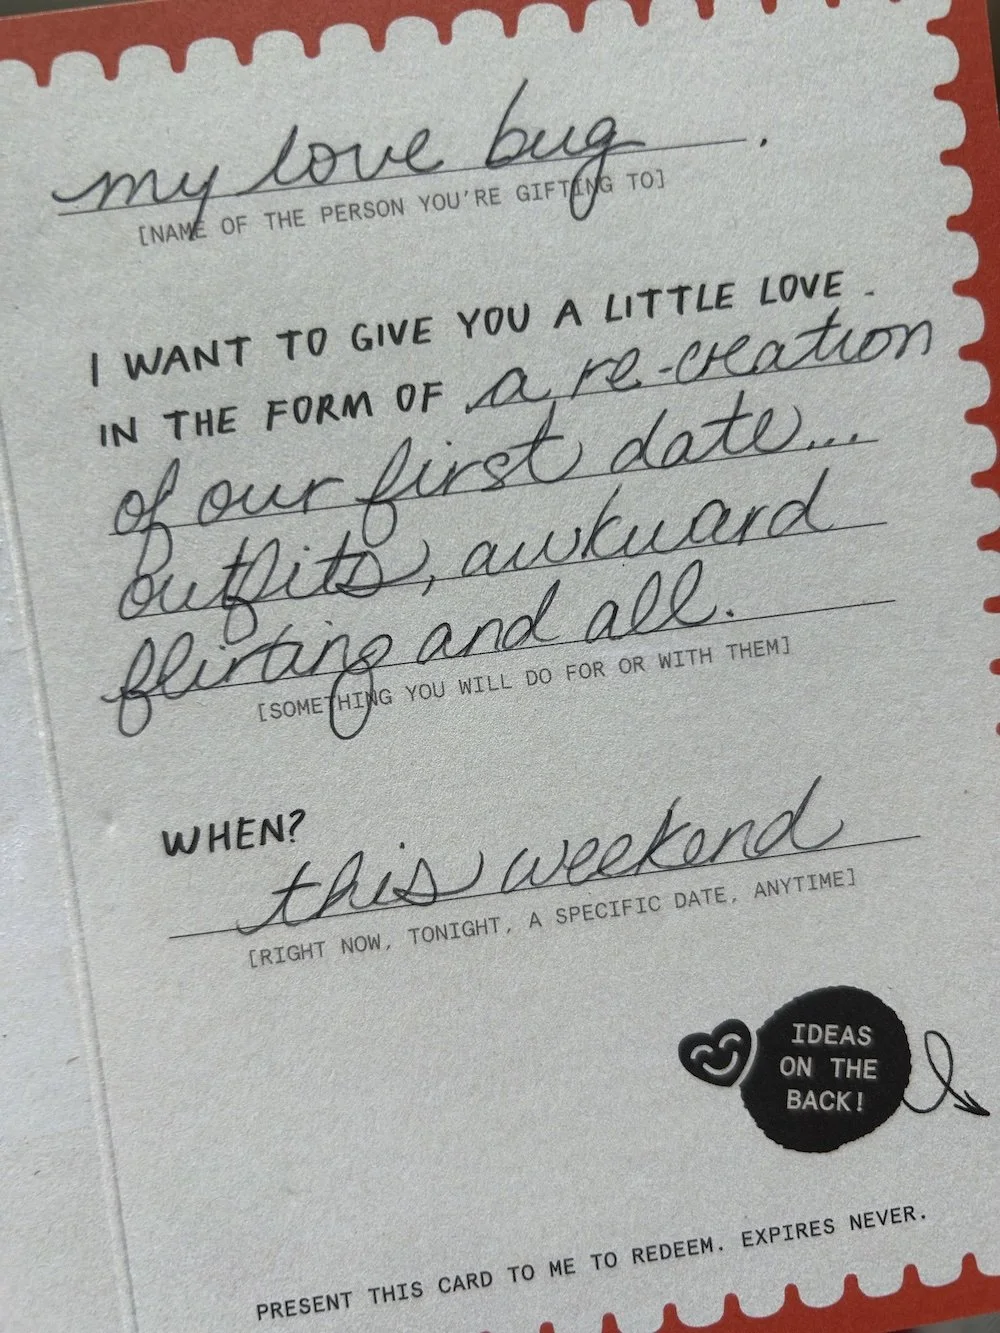 my love bug.
[NAME OF THE PERSON YOU'RE GIFTING TO]
I WANT TO GIVE YOU A LITTLE LOVE -
IN THE FORM OF a re-creation
of our first date...
outfits, awkward
flirting and all.
[SOMETHING YOU WILL DO FOR OR WITH THEM]
WHEN?
this weekend
[RIGHT NOW, TONIGHT, A SPECIFIC DATE, ANYTIME]
IDEAS
ON THE
BACK!
PRESENT THIS CARD TO ME TO REDEEM. EXPIRES NEVER.